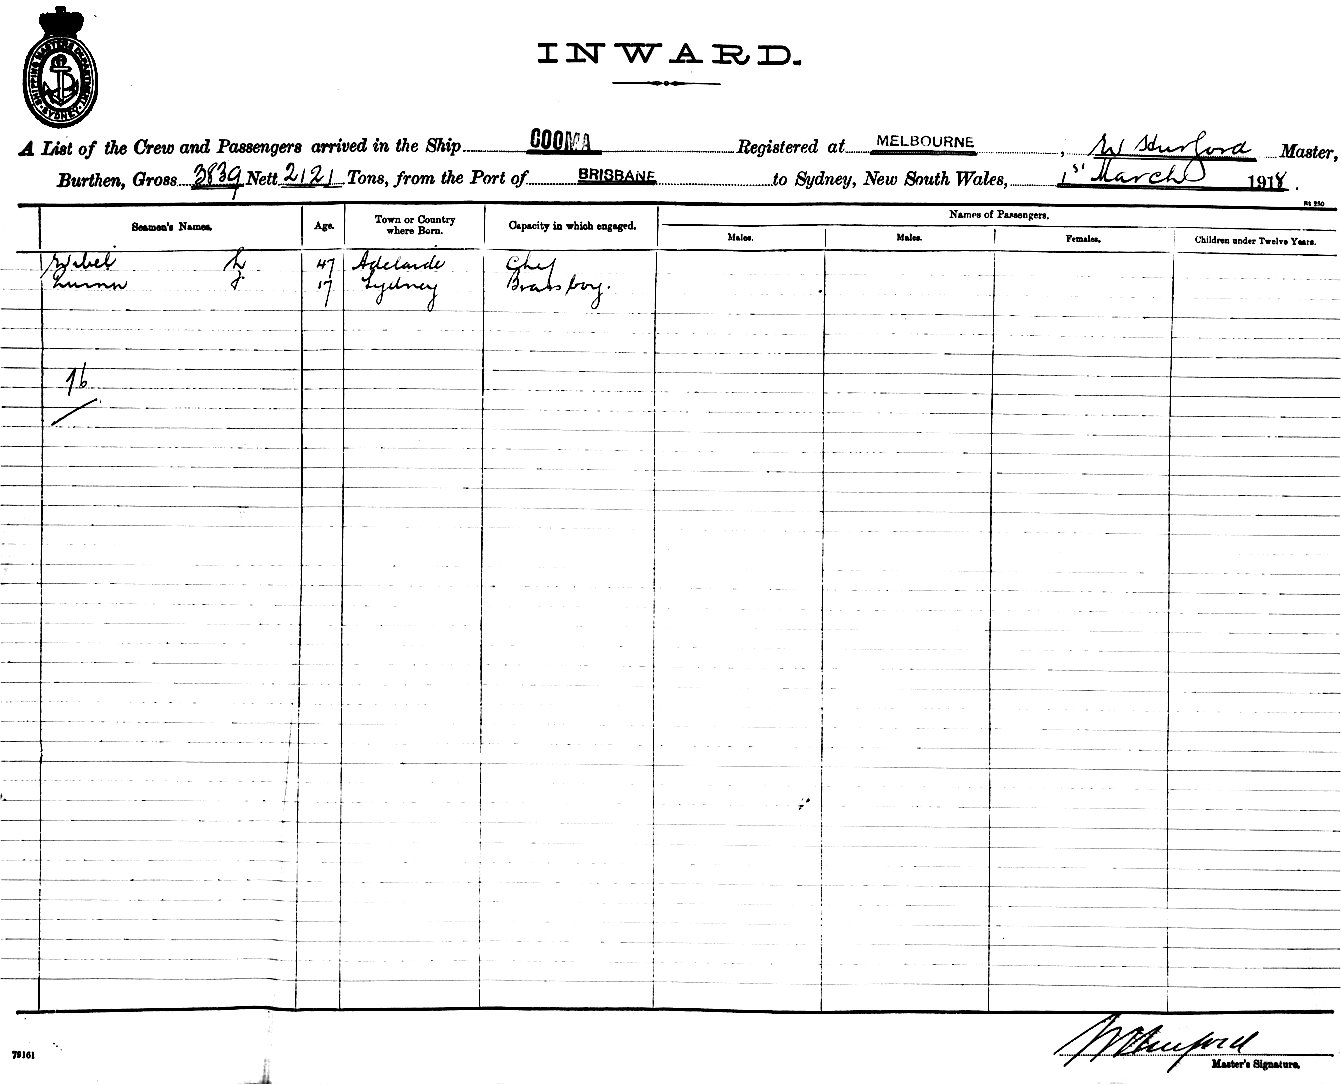 SHIPPING MASTERS DEPARTMENT SYDNEY
INWARD.
A List of the Crew and Passengers arrived in the Ship COOMA Registered at MELBOURNE, W Hurford Master,
Burthen, Gross 3839 Nett 2121 Tons, from the Port of BRISBANE to Sydney, New South Wales, 1st March 1918.
Seamen's Names. Age. Town or Country where Born. Capacity in which engaged. Names of Passengers.
Males. Males. Females. Children under Twelve Years.
47 Adelaide Chef
17 Sydney Brass boy.
76
79161
Master's Signature.